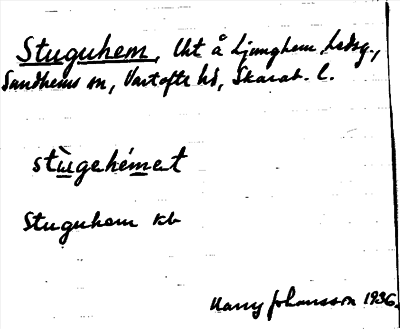 Stuguhem, Uht å Ljunghem hdsg.,
Sandhems sn, Vartofta hd, Skarab. l.
stùgehémet
Stuguhem kb
Harry Johansson 1936.